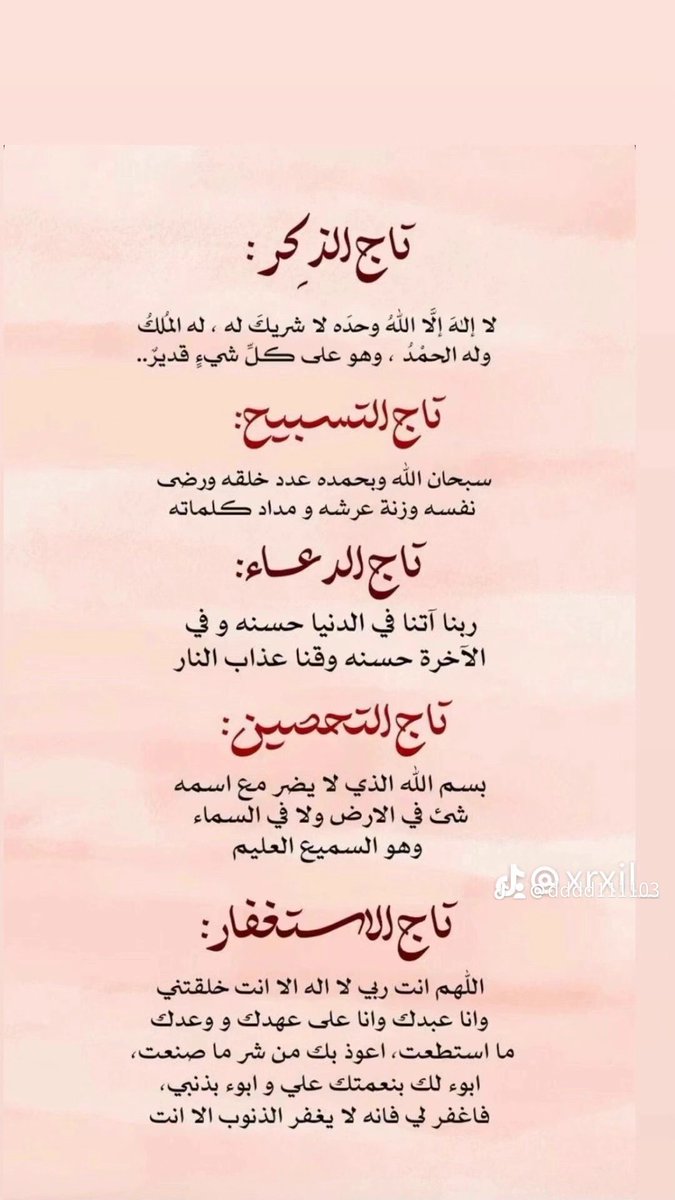 تاج الذِكر :
لا إلهَ إلَّا اللهُ وحدَه لا شريكَ له ، له المُلكُ
وله الحمْدُ ، وهو على كلِّ شيءٍ قديرٌ..
تاج التسبيح:
سبحان الله وبحمده عدد خلقه ورضى
نفسه وزنة عرشه و مداد كلماته
تاج الدعاء:
ربنا آتنا في الدنيا حسنه و في
الآخرة حسنه وقنا عذاب النار
تاج التحصين:
بسم الله الذي لا يضر مع اسمه
شئ في الارض ولا في السماء
وهو السميع العليم
@xrxil
تاج الاستغفار:
اللهم انت ربي لا اله الا انت خلقتني
وانا عبدك وانا على عهدك و وعدك
ما استطعت، اعوذ بك من شر ما صنعت،
ابوء لك بنعمتك علي و ابوء بذنبي،
فاغفر لي فانه لا يغفر الذنوب الا انت